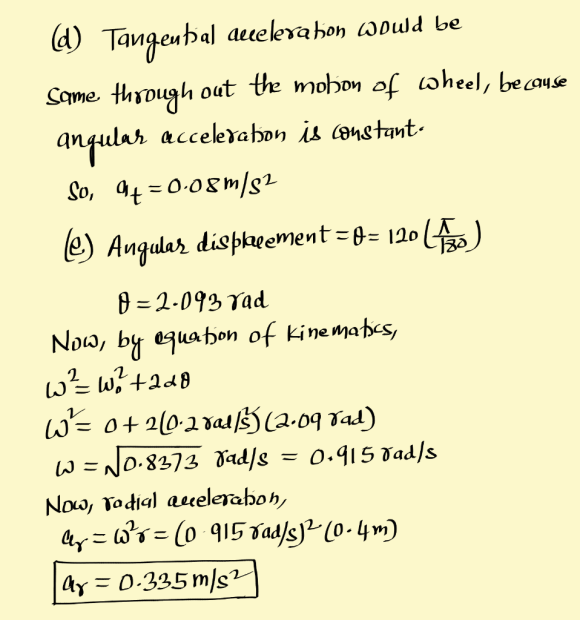 (d) Tangential acceleration would be
same through out the motion of wheel, because
angular acceleration is constant.
So, a_t = 0.08 m/s²
(e) Angular displacement = θ = 120 (π/180)
θ = 2.093 rad
Now, by equation of kinematics,
ω² = ω₀² + 2αθ
ω² = 0 + 2(0.2 rad/s²)(2.09 rad)
ω = √0.8373 rad/s = 0.915 rad/s
Now, radial acceleration,
a_r = ω²r = (0.915 rad/s)² (0.4m)
a_r = 0.335 m/s²